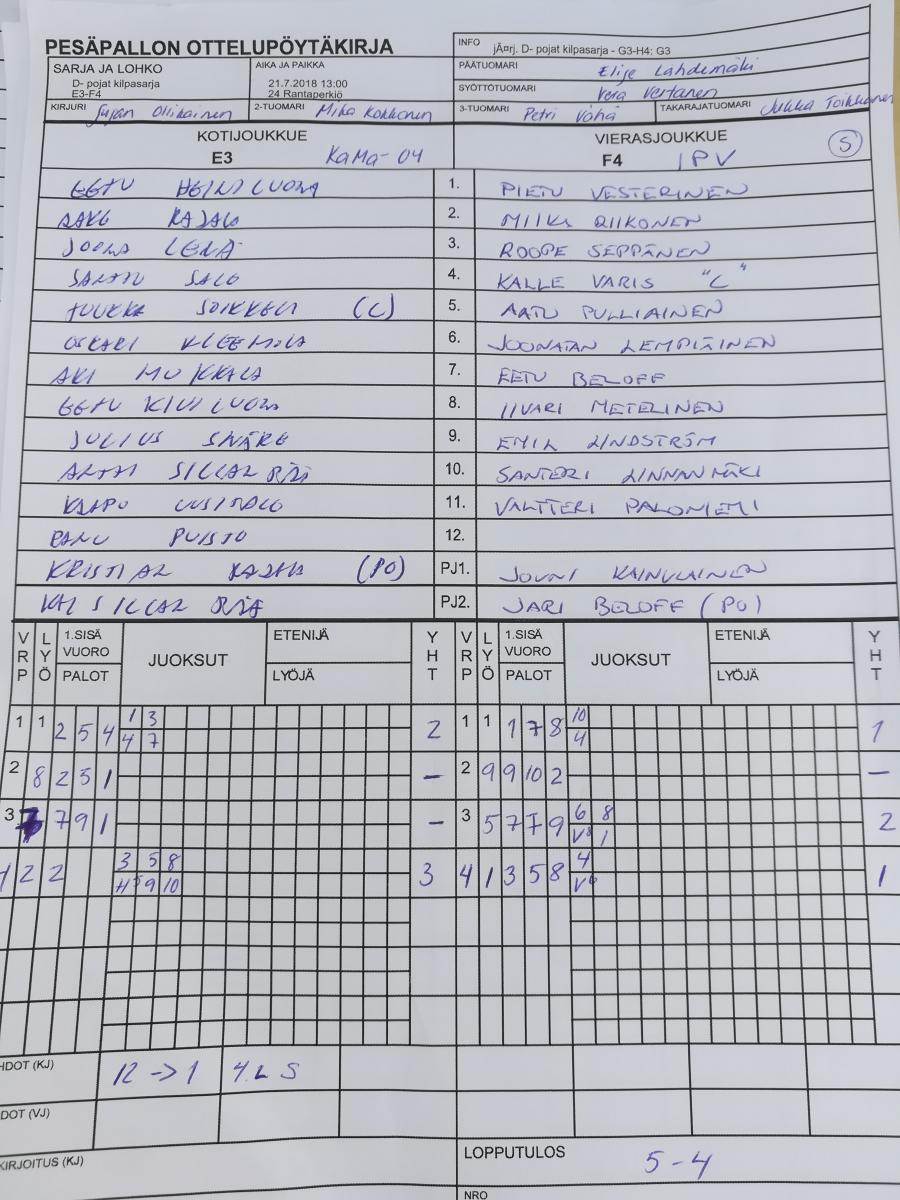 PESÄPALLON OTTELUPÖYTÄKIRJA
INFO jÃ¤rj. D- pojat kilpasarja - G3-H4: G3
SARJA JA LOHKO
D- pojat kilpasarja
E3-F4
AIKA JA PAIKKA
21.7.2018 13:00
24 Rantaperkiö
PÄÄTUOMARI Elise Lahdemäki
SYÖTTÖTUOMARI Vera Vertanen
KIRJURI Ollikainen
2-TUOMARI Mika Kokkonen
3-TUOMARI Petri Vähä
TAKARAJATUOMARI Jukka Toikkanen
KOTIJOUKKUE
E3 KaMa-04
VIERASJOUKKUE
F4 IPV S
EETU HEINILUOMA 1. PIETU VESTERINEN
KAJALA 2. MIIKA RIIKONEN
JOONA LERA 3. ROOPE SEPPÄNEN
SALO 4. KALLE VARIS "C"
JUUKKA SOIKKELI (C) 5. AATU PULLIAINEN
OSKARI KLEEMOLA 6. JOONATAN LEMPIÄINEN
AKI MUKKALA 7. EETU BELOFF
EETU KIVILUOMA 8. IIVARI METELINEN
JULIUS SIVÄRE 9. EMIL LINDSTRÖM
SILLANPÄÄ 10. SANTERI LINNANMÄKI
KAAPO UUSITALO 11. VALTTERI PALONIEMI
PANU PUISTO 12.
KRISTIAN KAJALA (PO) PJ1. JOUNI KAINULAINEN
KAI SILLANPÄÄ PJ2. JARI BELOFF (PO)
VRP LYÖ 1.SISÄ VUORO PALOT JUOKSUT ETENIJÄ LYÖJÄ YHT VRP LYÖ 1.SISÄ VUORO PALOT JUOKSUT ETENIJÄ LYÖJÄ YHT
1 3 10
1 1 2 5 4 2 1 1 1 7 8 1
4 7 4
2 8 2 3 1 – 2 9 9 10 2 –
6 8
3 7 7 9 1 – 3 5 7 7 9 2
V8 1
3 5 8 4
4 2 2 3 4 1 3 5 8 1
H5 9 10 V6
HDOT (KJ) 12 -> 1 4. L S
DOT (VJ)
KIRJOITUS (KJ)
LOPPUTULOS 5-4
NRO